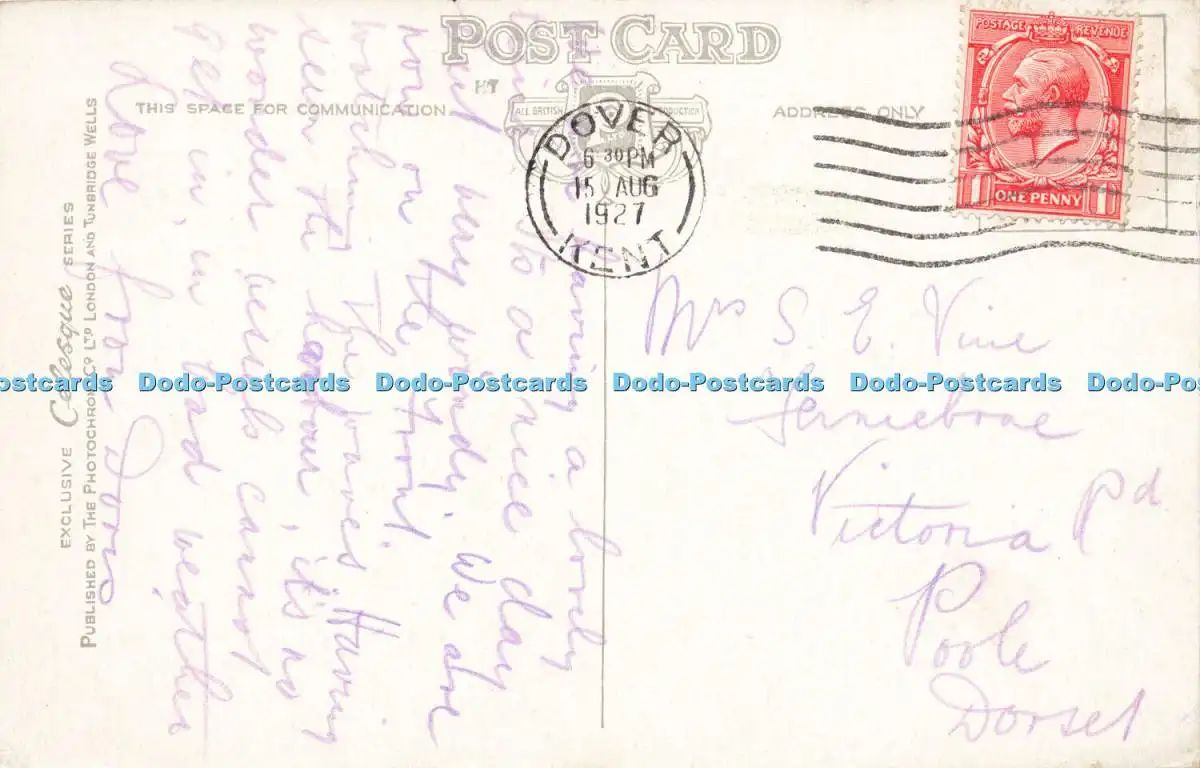 POST CARD
THIS SPACE FOR COMMUNICATION
ADDRESS ONLY
ALL BRITISH PRODUCTION
POSTAGE REVENUE
ONE PENNY
DOVER
6 30 PM
15 AUG
1927
KENT
Mrs S. E. Vine
Victoria Rd
Poole
Dorset
having a lovely
to a nice day
but very windy. We are
now on the front.
The waves. Having
seen harbour, it's no
wonder vessels cannot
get in, in bad weather
Love from
EXCLUSIVE Celesque SERIES
PUBLISHED BY THE PHOTOCHROM CO. LTD LONDON AND TUNBRIDGE WELLS
ostcards Dodo-Postcards Dodo-Postcards Dodo-Postcards Dodo-Postcards Dodo-Post